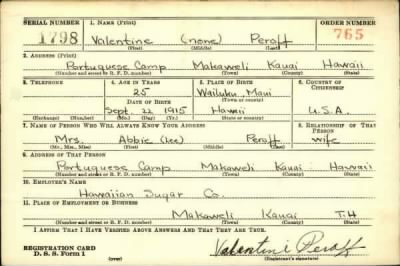 SERIAL NUMBER 1. NAME (Print) ORDER NUMBER
1798 Valentine (none) Peroff 765
(First) (Middle) (Last)
2. ADDRESS (Print)
Portuguese Camp Makaweli Kauai Hawaii
(Number and street or R. F. D. number) (Town) (County) (State)
3. TELEPHONE 4. AGE IN YEARS 5. PLACE OF BIRTH 6. COUNTRY OF CITIZENSHIP
25 Wailuku, Maui
DATE OF BIRTH (Town or county)
Sept. 22 1915 Hawaii U.S.A.
(Exchange) (Number) (Mo.) (Day) (Yr.) (State or country)
7. NAME OF PERSON WHO WILL ALWAYS KNOW YOUR ADDRESS 8. RELATIONSHIP OF THAT PERSON
Mrs. Abbie (Lee) Peroff wife
(Mr., Mrs., Miss) (First) (Middle) (Last)
9. ADDRESS OF THAT PERSON
Portuguese Camp Makaweli Kauai Hawaii
(Number and street or R. F. D. number) (Town) (County) (State)
10. EMPLOYER'S NAME
Hawaiian Sugar Co.
11. PLACE OF EMPLOYMENT OR BUSINESS
Makaweli Kauai T.H
(Number and street or R. F. D. number) (Town) (County) (State)
I AFFIRM THAT I HAVE VERIFIED ABOVE ANSWERS AND THAT THEY ARE TRUE.
REGISTRATION CARD
D. S. S. Form 1 (over) Valentine Peroff
(Registrant's signature)